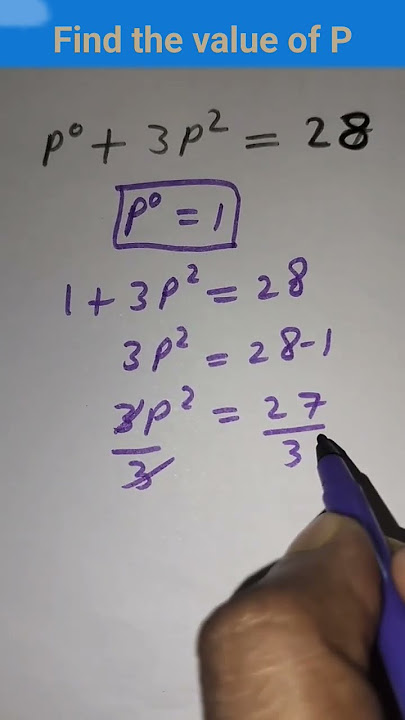 Find the value of P
p⁰ + 3p² = 28
p⁰ = 1
1 + 3p² = 28
3p² = 28-1
3p²/3 = 27/3